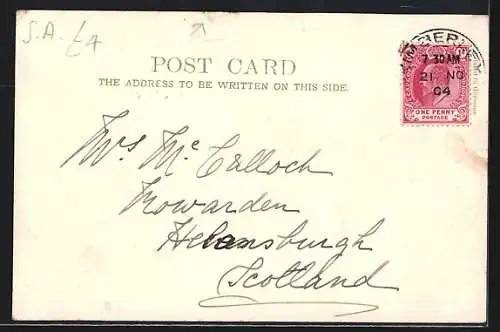 S.A. £4
POST CARD
THE ADDRESS TO BE WRITTEN ON THIS SIDE.
7 30 AM
21 NO
04
ONE PENNY
POSTAGE
Mrs McCulloch
Helensburgh
Scotland